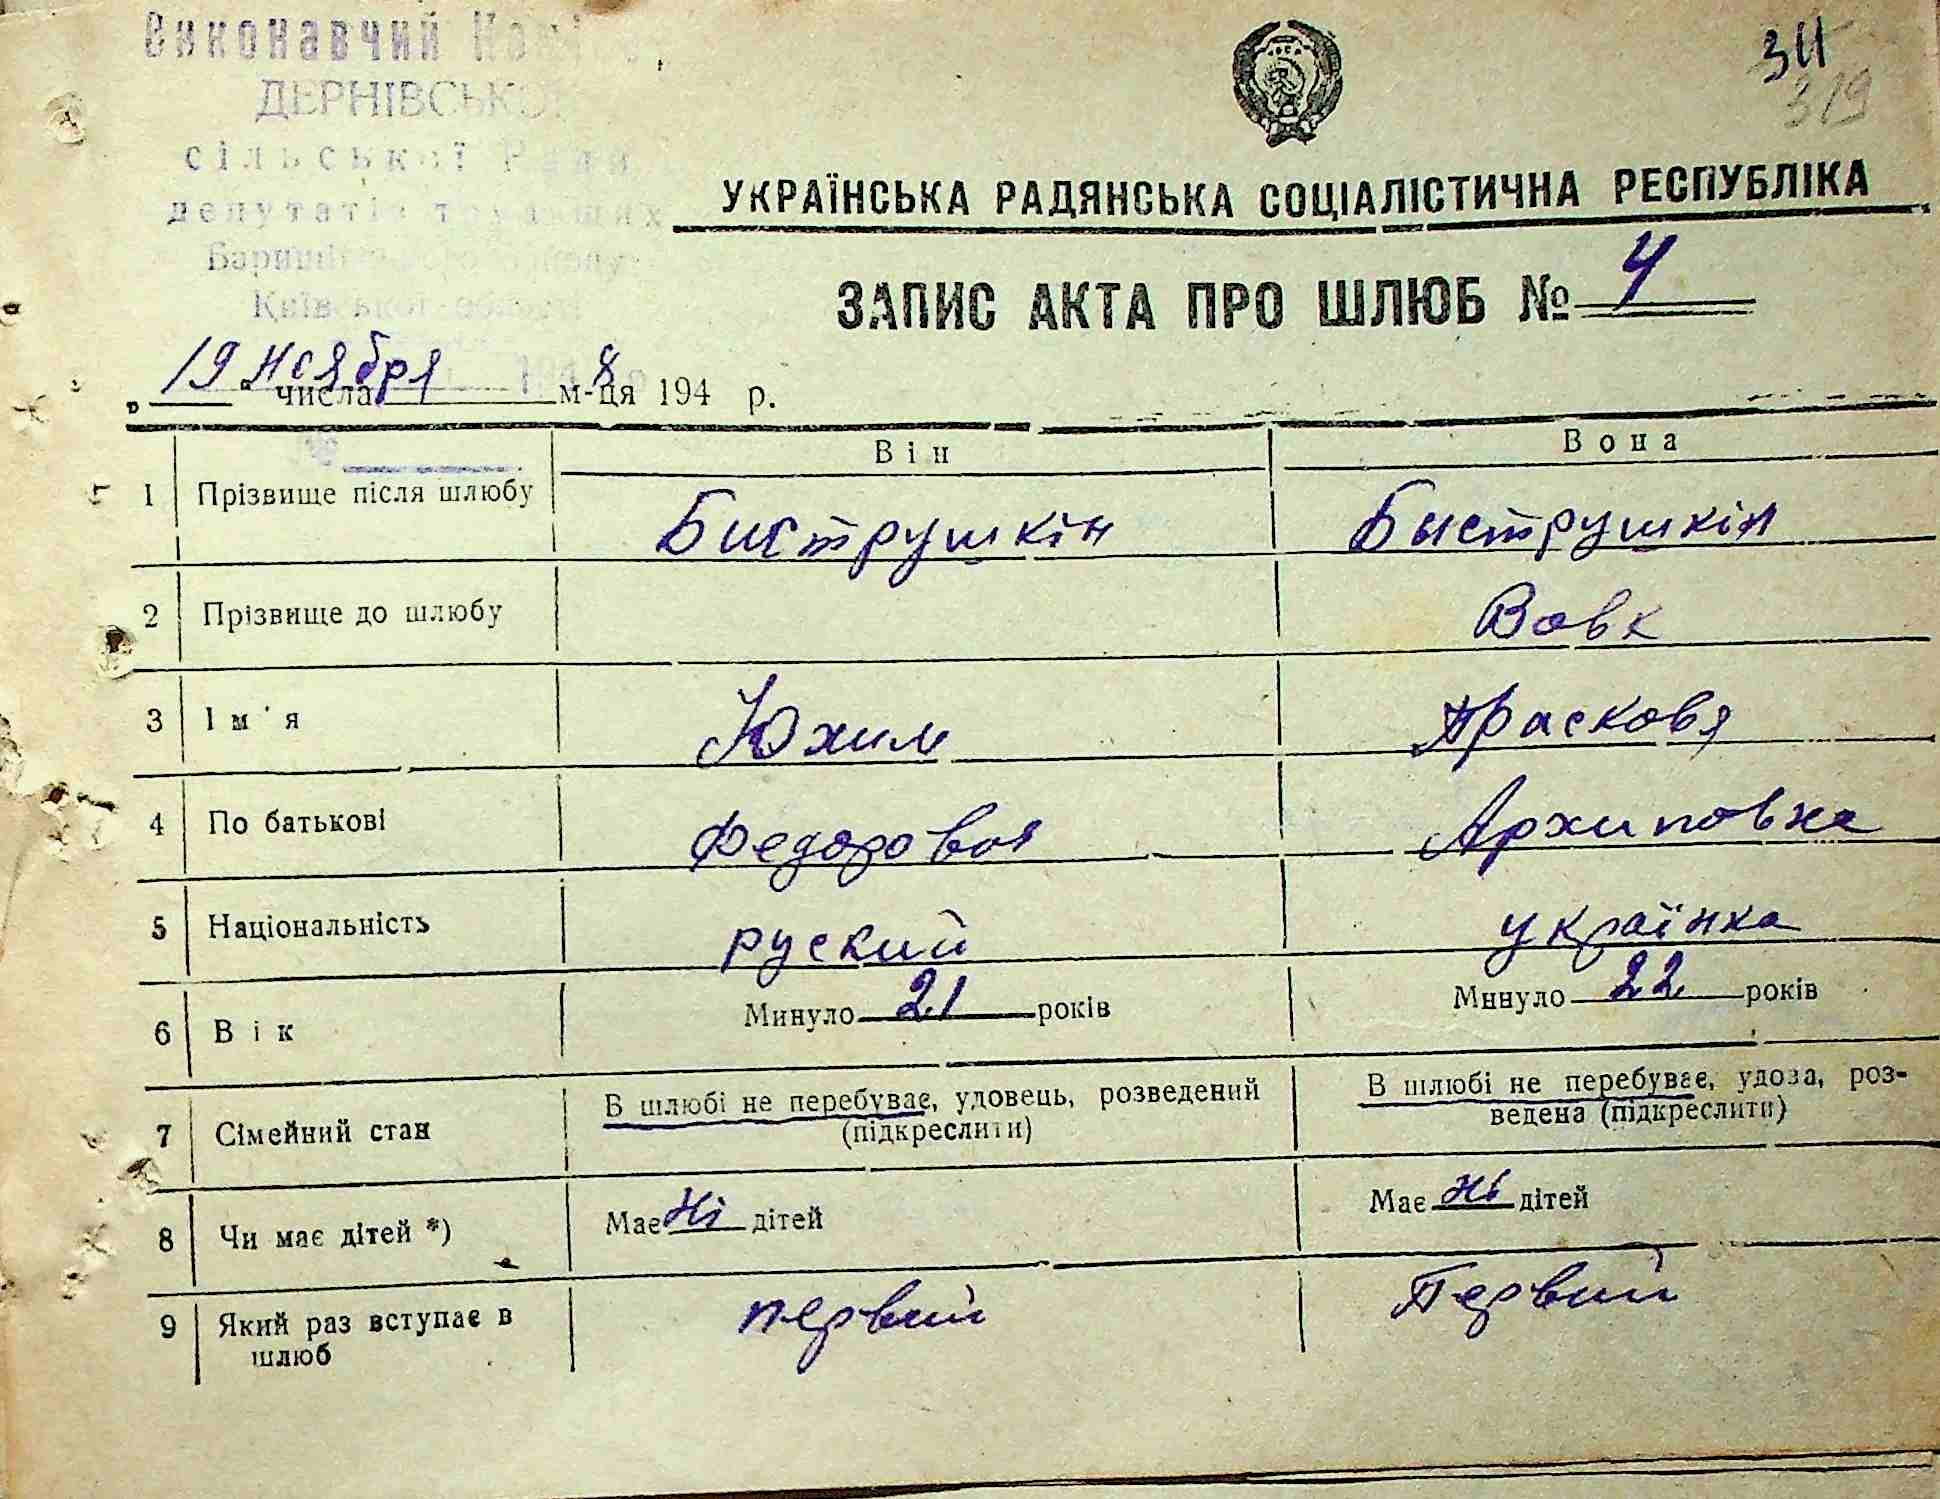 Виконавчий Комі
ДЕРНІВСЬКОЇ
сільської Ради
депутатів трудящих
Київської області
311
319
УКРАЇНСЬКА РАДЯНСЬКА СОЦІАЛІСТИЧНА РЕСПУБЛІКА
ЗАПИС АКТА ПРО ШЛЮБ № 4
„ 19 " числа ноября м-ця 1948 р.
Він Вона
1 Прізвище після шлюбу Биструшкін Быструшкін
2 Прізвище до шлюбу Вовк
3 Ім'я Юхим Прасковя
4 По батькові Федорович Архиповна
5 Національність руский українка
6 Вік Минуло 21 років Минуло 22 років
7 Сімейний стан В шлюбі не перебуває, удовець, розведений В шлюбі не перебуває, удова, роз-
(підкреслити) ведена (підкреслити)
8 Чи має дітей *) Має ні дітей Має ні дітей
9 Який раз вступає в первий Первий
шлюб